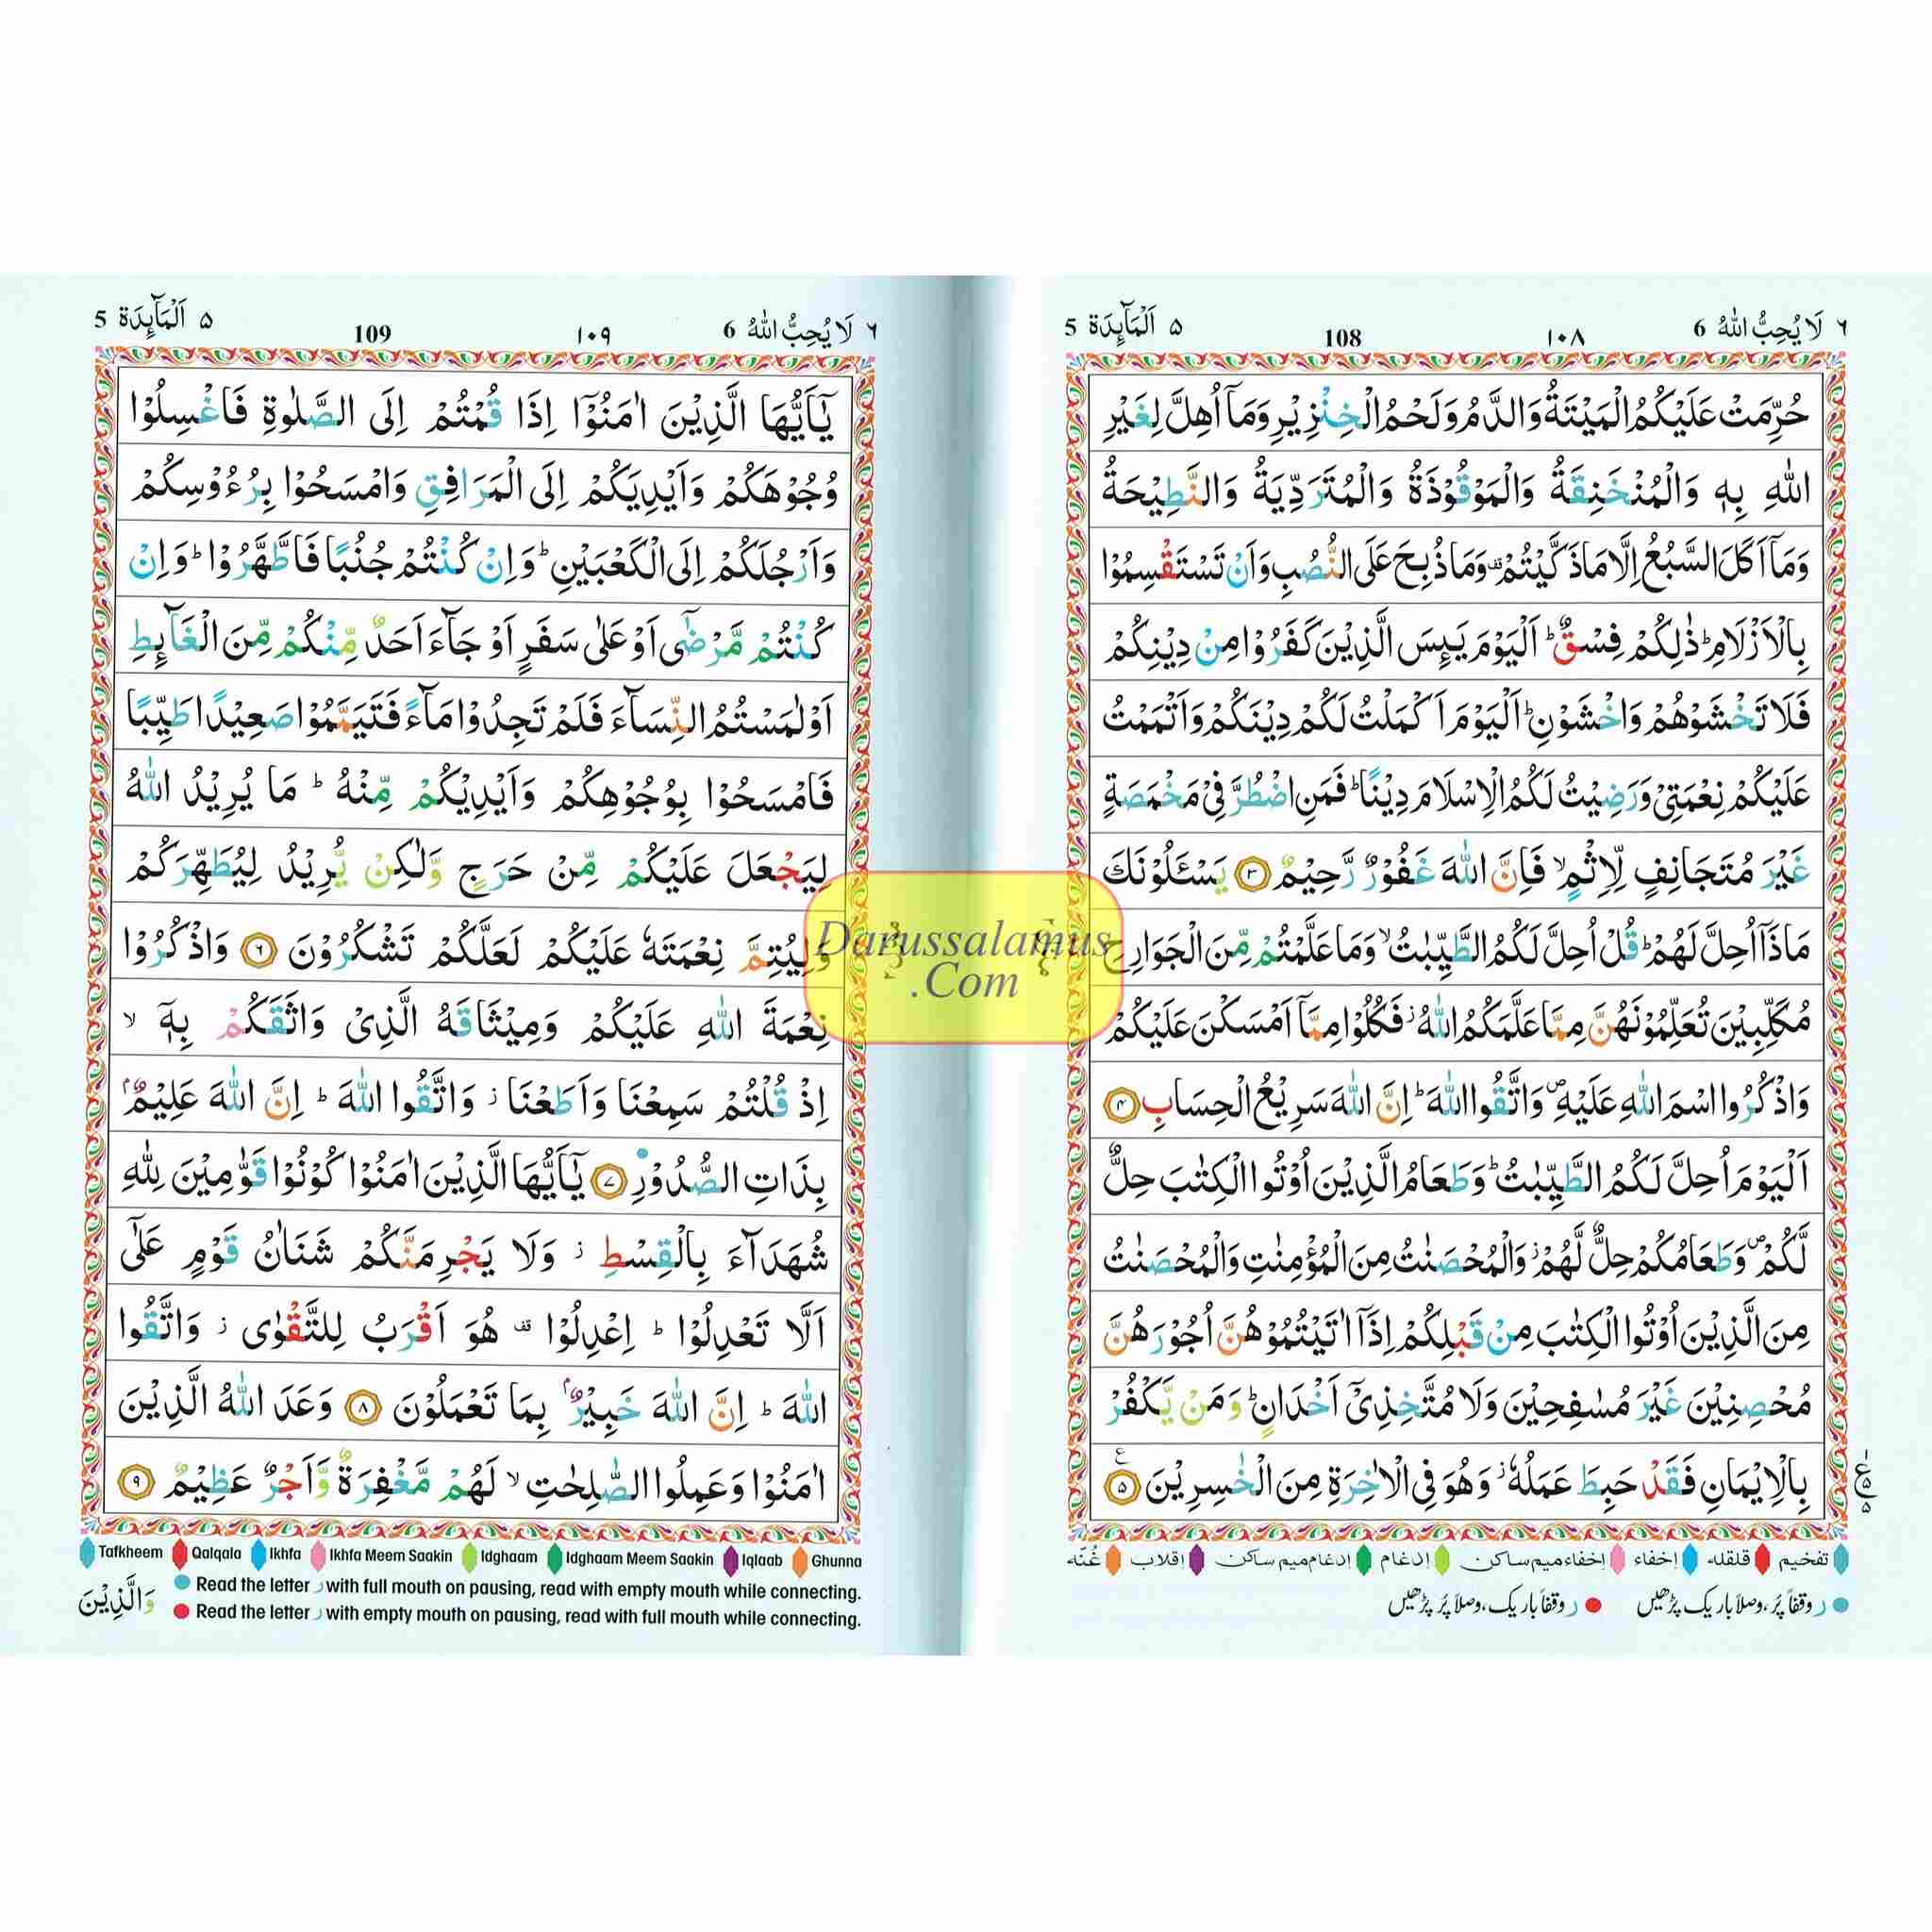 ٦ لَا يُحِبُّ اللّٰهُ 6 ١٠٨ 108 ٥ اَلْمَآىِٕدَة 5
حُرِّمَتْ عَلَيْكُمُ الْمَيْتَةُ وَالدَّمُ وَلَحْمُ الْخِنْزِيْرِ وَمَاۤ اُهِلَّ لِغَيْرِ
اللّٰهِ بِهٖ وَالْمُنْخَنِقَةُ وَالْمَوْقُوْذَةُ وَالْمُتَرَدِّيَةُ وَالنَّطِيْحَةُ
وَمَاۤ اَكَلَ السَّبُعُ اِلَّا مَا ذَكَّيْتُمْ ۫ وَمَا ذُبِحَ عَلَى النُّصُبِ وَاَنْ تَسْتَقْسِمُوْا
بِالْاَزْلَامِ ؕ ذٰلِكُمْ فِسْقٌ ؕ اَلْيَوْمَ يَىِٕسَ الَّذِيْنَ كَفَرُوْا مِنْ دِيْنِكُمْ
فَلَا تَخْشَوْهُمْ وَاخْشَوْنِ ؕ اَلْيَوْمَ اَكْمَلْتُ لَكُمْ دِيْنَكُمْ وَاَتْمَمْتُ
عَلَيْكُمْ نِعْمَتِيْ وَرَضِيْتُ لَكُمُ الْاِسْلَامَ دِيْنًا ؕ فَمَنِ اضْطُرَّ فِيْ مَخْمَصَةٍ
غَيْرَ مُتَجَانِفٍ لِّاِثْمٍ ۙ فَاِنَّ اللّٰهَ غَفُوْرٌ رَّحِيْمٌ ٣ يَسْـَٔلُوْنَكَ
مَاذَاۤ اُحِلَّ لَهُمْ ؕ قُلْ اُحِلَّ لَكُمُ الطَّيِّبٰتُ ۙ وَمَا عَلَّمْتُمْ مِّنَ الْجَوَارِحِ
مُكَلِّبِيْنَ تُعَلِّمُوْنَهُنَّ مِمَّا عَلَّمَكُمُ اللّٰهُ ؗ فَكُلُوْا مِمَّاۤ اَمْسَكْنَ عَلَيْكُمْ
وَاذْكُرُوا اسْمَ اللّٰهِ عَلَيْهِ ۪ وَاتَّقُوا اللّٰهَ ؕ اِنَّ اللّٰهَ سَرِيْعُ الْحِسَابِ ٤
اَلْيَوْمَ اُحِلَّ لَكُمُ الطَّيِّبٰتُ ؕ وَطَعَامُ الَّذِيْنَ اُوْتُوا الْكِتٰبَ حِلٌّ
لَّكُمْ ۪ وَطَعَامُكُمْ حِلٌّ لَّهُمْ ؗ وَالْمُحْصَنٰتُ مِنَ الْمُؤْمِنٰتِ وَالْمُحْصَنٰتُ
مِنَ الَّذِيْنَ اُوْتُوا الْكِتٰبَ مِنْ قَبْلِكُمْ اِذَاۤ اٰتَيْتُمُوْهُنَّ اُجُوْرَهُنَّ
مُحْصِنِيْنَ غَيْرَ مُسٰفِحِيْنَ وَلَا مُتَّخِذِيْۤ اَخْدَانٍ ؕ وَمَنْ يَّكْفُرْ
بِالْاِيْمَانِ فَقَدْ حَبِطَ عَمَلُهٗ ؗ وَهُوَ فِي الْاٰخِرَةِ مِنَ الْخٰسِرِيْنَ ٥
تفخیم قلقلہ إخفاء إخفاء میم ساکن إدغام إدغام میم ساکن إقلاب غُنّه
ر وقفاً پُر، وصلاً باریک پڑھیں ر وقفاً باریک، وصلاً پُر پڑھیں
٦ لَا يُحِبُّ اللّٰهُ 6 ١٠٩ 109 ٥ اَلْمَآىِٕدَة 5
يٰۤاَيُّهَا الَّذِيْنَ اٰمَنُوْۤا اِذَا قُمْتُمْ اِلَى الصَّلٰوةِ فَاغْسِلُوْا
وُجُوْهَكُمْ وَاَيْدِيَكُمْ اِلَى الْمَرَافِقِ وَامْسَحُوْا بِرُءُوْسِكُمْ
وَاَرْجُلَكُمْ اِلَى الْكَعْبَيْنِ ؕ وَاِنْ كُنْتُمْ جُنُبًا فَاطَّهَّرُوْا ؕ وَاِنْ
كُنْتُمْ مَّرْضٰۤى اَوْ عَلٰى سَفَرٍ اَوْ جَآءَ اَحَدٌ مِّنْكُمْ مِّنَ الْغَآىِٕطِ
اَوْ لٰمَسْتُمُ النِّسَآءَ فَلَمْ تَجِدُوْا مَآءً فَتَيَمَّمُوْا صَعِيْدًا طَيِّبًا
فَامْسَحُوْا بِوُجُوْهِكُمْ وَاَيْدِيْكُمْ مِّنْهُ ؕ مَا يُرِيْدُ اللّٰهُ
لِيَجْعَلَ عَلَيْكُمْ مِّنْ حَرَجٍ وَّلٰكِنْ يُّرِيْدُ لِيُطَهِّرَكُمْ
وَلِيُتِمَّ نِعْمَتَهٗ عَلَيْكُمْ لَعَلَّكُمْ تَشْكُرُوْنَ ٦ وَاذْكُرُوْا
نِعْمَةَ اللّٰهِ عَلَيْكُمْ وَمِيْثَاقَهُ الَّذِيْ وَاثَقَكُمْ بِهٖۤ ۙ
اِذْ قُلْتُمْ سَمِعْنَا وَاَطَعْنَا ؗ وَاتَّقُوا اللّٰهَ ؕ اِنَّ اللّٰهَ عَلِيْمٌۢ
بِذَاتِ الصُّدُوْرِ ٧ يٰۤاَيُّهَا الَّذِيْنَ اٰمَنُوْا كُوْنُوْا قَوّٰمِيْنَ لِلّٰهِ
شُهَدَآءَ بِالْقِسْطِ ؗ وَلَا يَجْرِمَنَّكُمْ شَنَاٰنُ قَوْمٍ عَلٰۤى
اَلَّا تَعْدِلُوْا ؕ اِعْدِلُوْا ۫ هُوَ اَقْرَبُ لِلتَّقْوٰى ؗ وَاتَّقُوا
اللّٰهَ ؕ اِنَّ اللّٰهَ خَبِيْرٌۢ بِمَا تَعْمَلُوْنَ ٨ وَعَدَ اللّٰهُ الَّذِيْنَ
اٰمَنُوْا وَعَمِلُوا الصّٰلِحٰتِ ۙ لَهُمْ مَّغْفِرَةٌ وَّاَجْرٌ عَظِيْمٌ ٩
Tafkheem Qalqala Ikhfa Ikhfa Meem Saakin Idghaam Idghaam Meem Saakin Iqlaab Ghunna
Read the letter ر with full mouth on pausing, read with empty mouth while connecting.
Read the letter ر with empty mouth on pausing, read with full mouth while connecting.
وَالَّذِيْنَ
Darussalamus
.Com